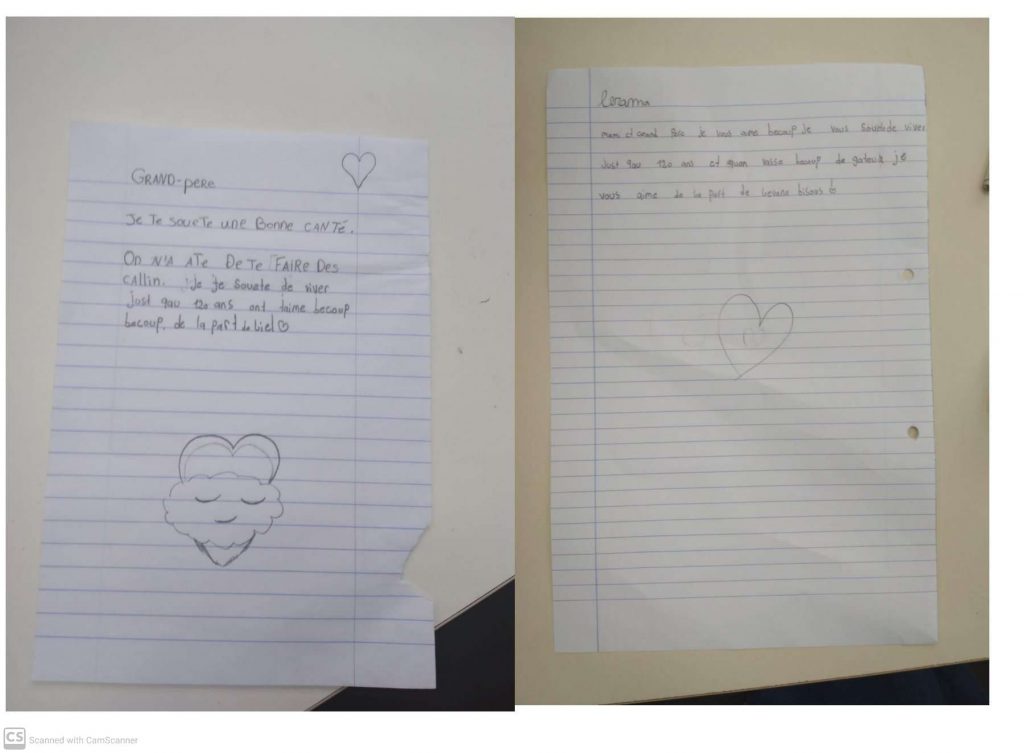 GRAND-pere
Je Te soueTe une Bonne CANTÉ.
On N'A ATe De Te FAIRe Des
CAllin. Je te Souete de viver
just qau 120 ans ont taime becoup
becoup. de la part de liel
et Grand Pere je vous ame becoup Je vous Souete de viver
Just qau 120 ans et quon fasse becoup de gateux je
vous aime de la part de bisous
CS Scanned with CamScanner